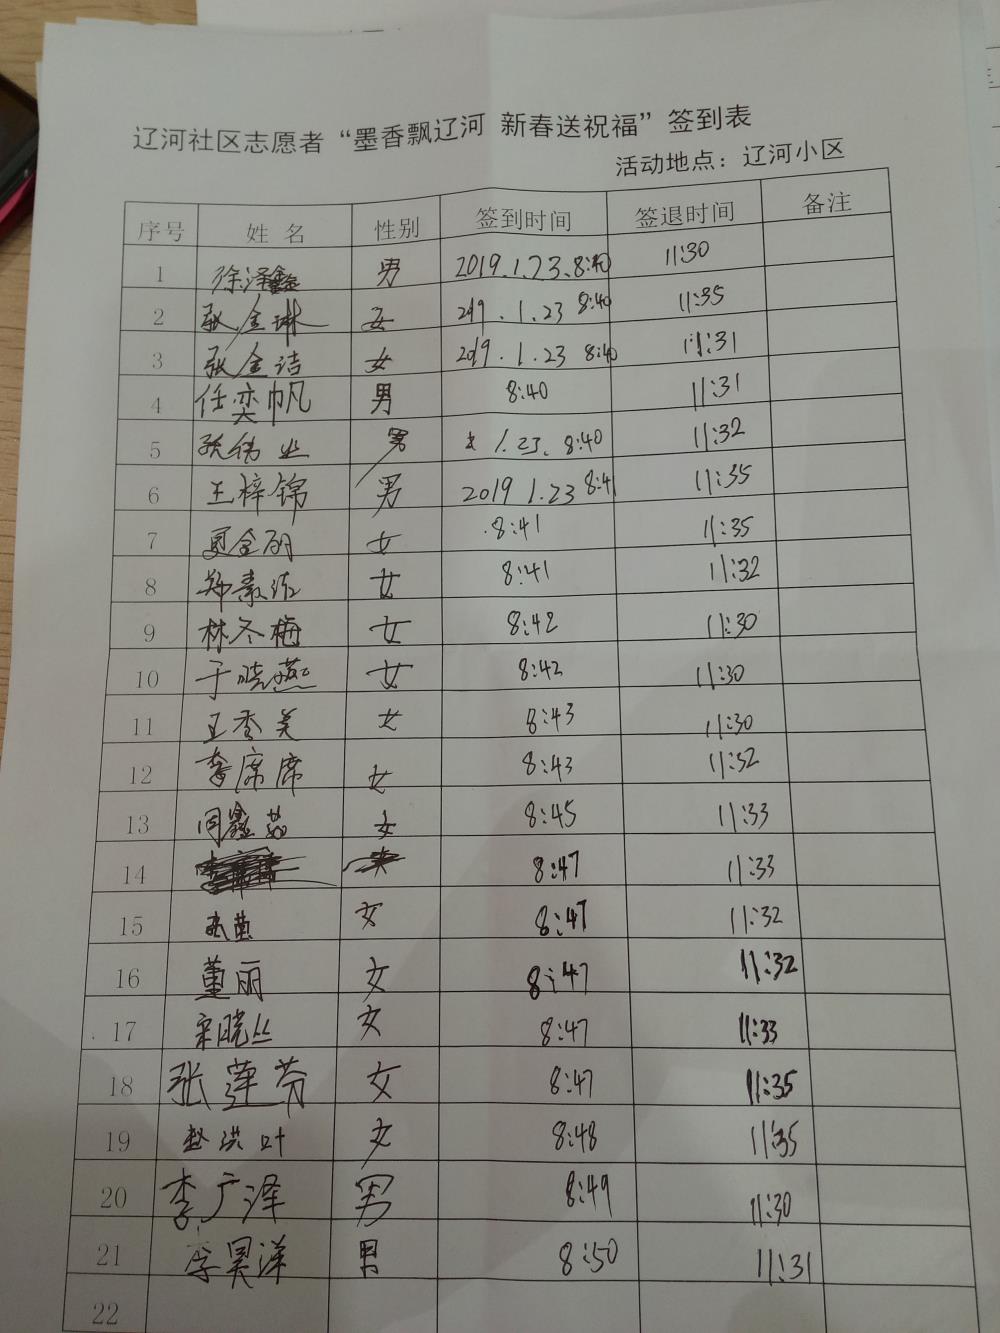 辽河社区志愿者“墨香飘辽河 新春送祝福”签到表
活动地点：辽河小区
序号 姓名 性别 签到时间 签退时间 备注
1 徐泽鑫 男 2019.1.23.8:40 11:30
2 张金琳 女 2019.1.23 8:40 11:35
3 张金洁 女 2019.1.23 8:40 11:31
4 任奕帆 男 8:40 11:31
5 张伟业 男 1.23. 8:40 11:32
6 王梓锦 男 2019 1.23 8:41 11:35
7 女 8:41 11:35
8 女 8:41 11:32
9 林冬梅 女 8:42 11:30
10 于晓燕 女 8:42 11:30
11 王秀美 女 8:43 11:30
12 李席席 女 8:43 11:32
13 女 8:45 11:33
14 8:47 11:33
15 女 8:47 11:32
16 董丽 女 8:47 11:32
17 宋晓丛 女 8:47 11:33
18 张莲芬 女 8:47 11:35
19 赵洪叶 女 8:48 11:35
20 李广泽 男 8:49 11:30
21 李昊洋 男 8:50 11:31
22